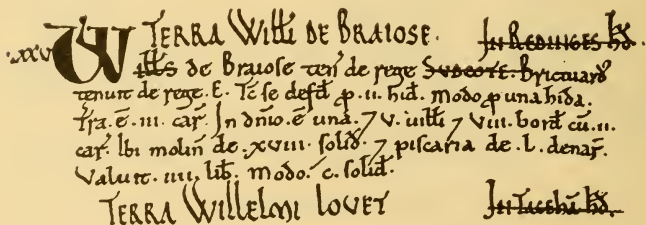 TERRA Willi DE BRAIOSE. IN REDINGES Hd̄.
.xxv Wills de Braiose ten̄ de rege SUDCOTE. Brictuard
tenuit de rege. E. Tc̄ se defd̄ p̄ .II. hid̄. modo p̄ una hida.
Tr̄a. ē .III. car̄. In dn̄io. ē una. ⁊ v. uilli ⁊ VIII. bord̄ cū .II.
car̄. Ibi molin̄ de .XVIII. solid̄. ⁊ piscaria de .L. denar̄.
Valuit .IIII. lib̄. modo. c. solid̄.
TERRA WILLELMI LOVET IN Taceham Hd̄.